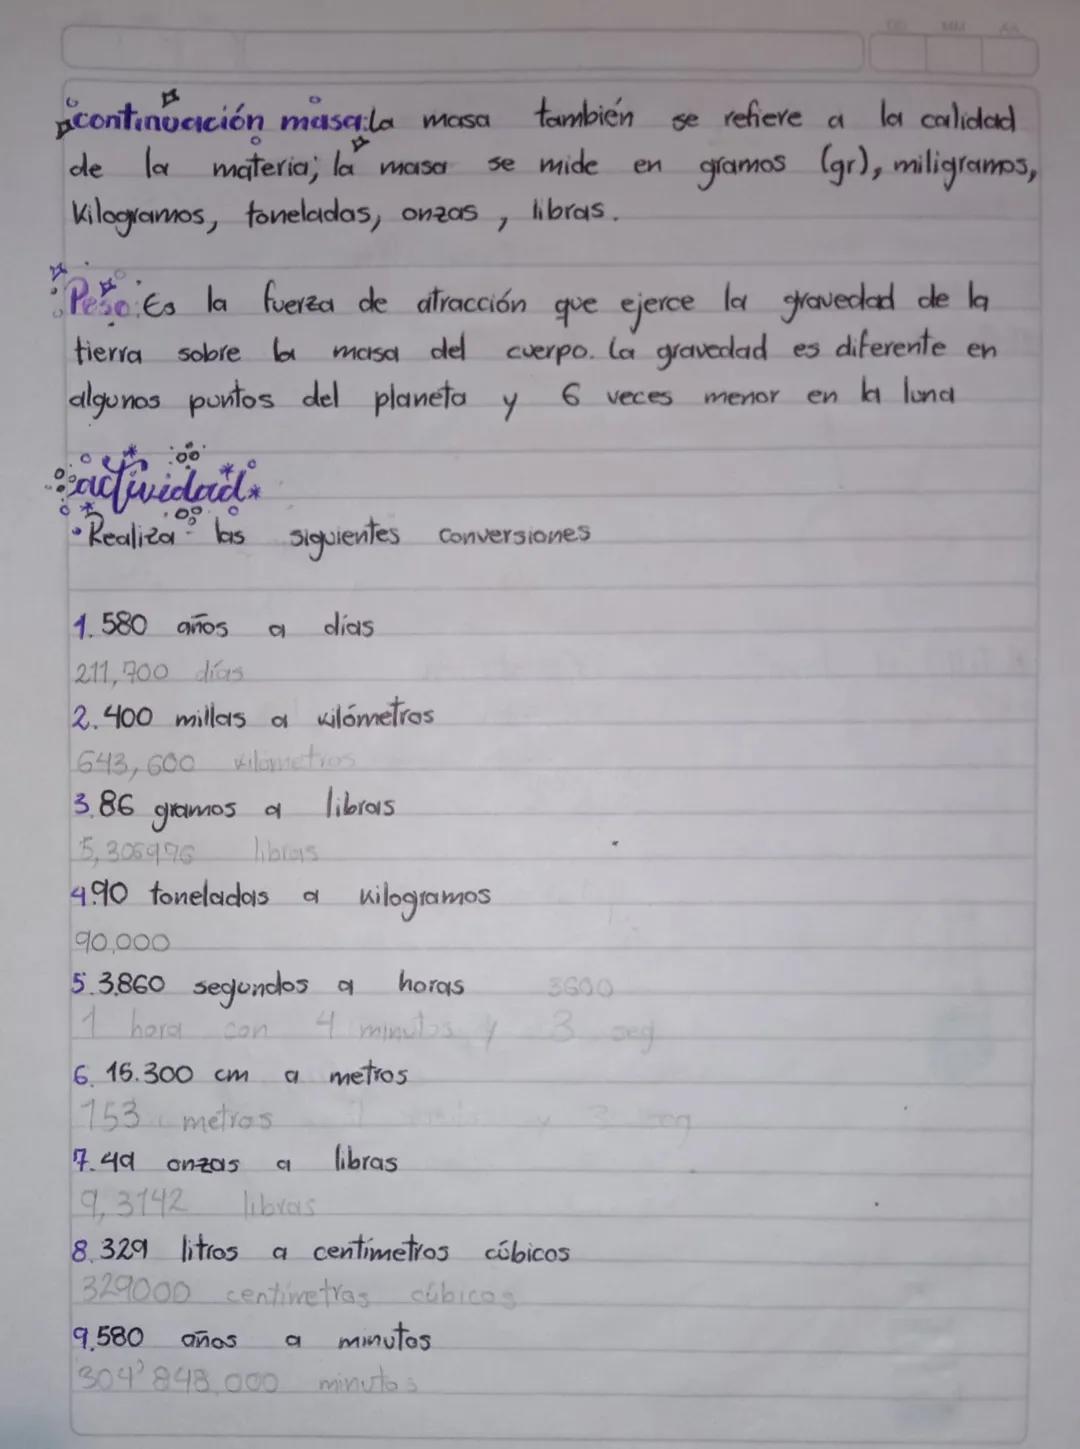 DD MM AA
continuación masa: la masa también se refiere a la calidad
de la materia; la masa se mide en gramos (gr), miligramos,
Kilogramos, toneladas, onzas, libras.
Peso: Es la fuerza de atracción que ejerce la gravedad de la
tierra sobre la masa del cuerpo. la gravedad es diferente en
algunos puntos del planeta y 6 veces menor en la luna
actividad
• Realiza las siguientes conversiones
1. 580 años a días
211,700 días
2. 400 millas a kilómetros
643,600 kilometros
3. 86 gramos a libras
5,306996 libras
4. 90 toneladas a kilogramos
90,000
5. 3.860 segundos a horas 3600
1 hora con 4 minutos y 3 seg
6. 15.300 cm a metros
153 metros
7. 49 onzas a libras
9,3142 libras
8. 329 litros a centímetros cúbicos
329000 centimetros cúbicos
9. 580 años a minutos
304'848,000 minutos